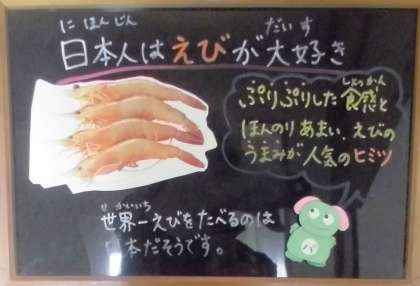 にほんじん だいす
日本人はえびが大好き
しょっかん
ぷりぷりした食感と
ほんのりあまい、えびの
うまみが人気のヒミツ
せかいいち
世界一えびをたべるのは
日本だそうです。
パ